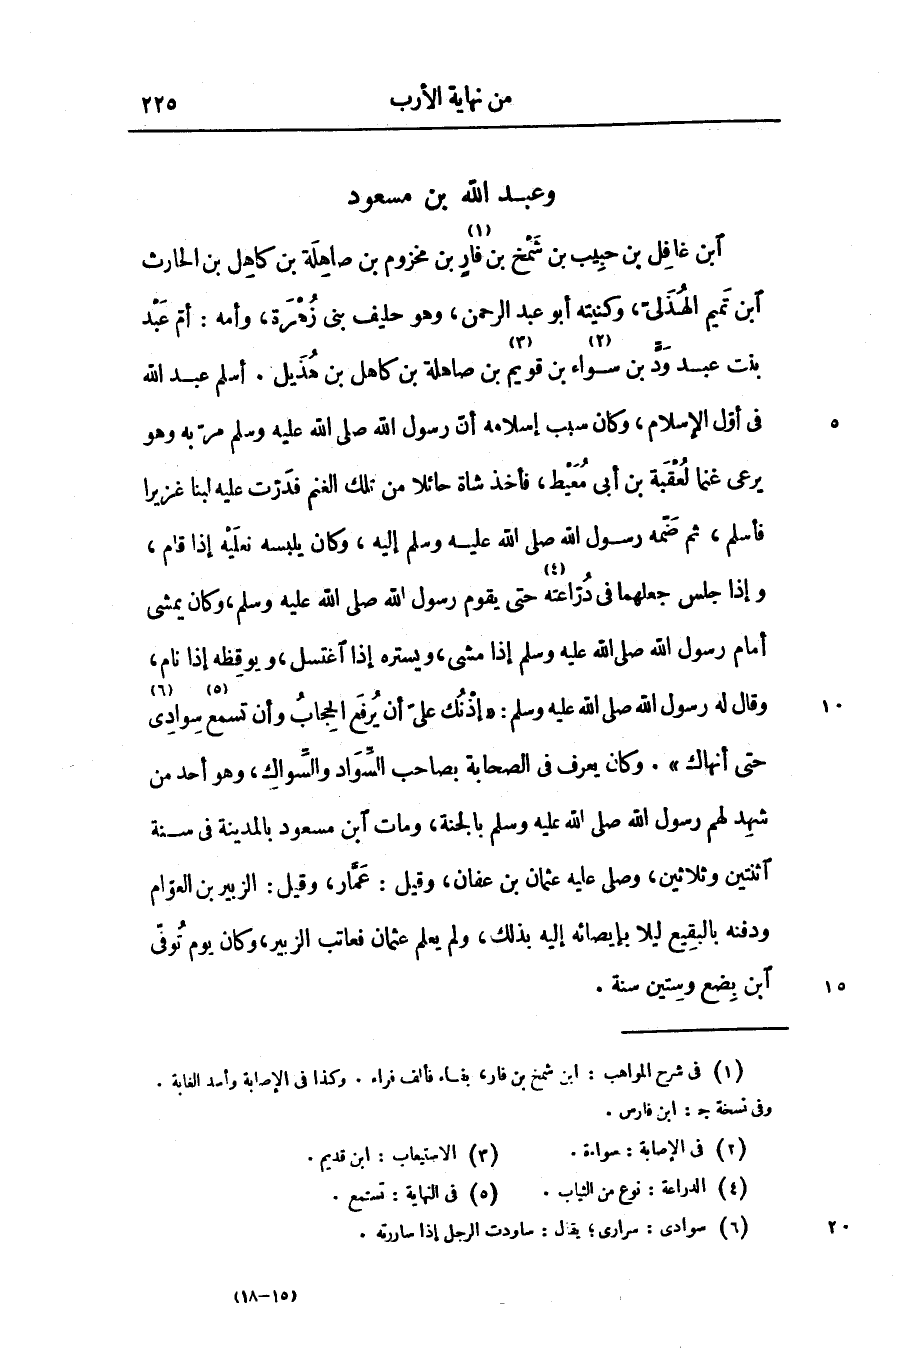 من نهاية الأرب ٢٢٥
وعبـد الله بن مسعود
(١)
آبن غافِل بن حبِيب بن شَمْخ بن فارٍ بن مخزوم بن صاهِلَة بن كاهِل بن الحارث
آبن تَمِيم الهُذَلىّ، وكنيته أبو عبد الرحمن، وهو حليف بنى زُهْرَة، وأمه : أمّ عَبْد
(٢) (٣)
بنت عبـد وَدّ بن سـواء بن قويم بن صاهلة بن كاهل بن هُذَيل . أسلم عبـد الله
فى أوّل الإسلام، وكان سبب إسلامه أنّ رسول الله صلى الله عليه وسلم مرّ به وهو ٥
يرعى غنما لُعْقبة بن أبى مُعَيْط، فأخذ شاة حائلا من تلك الغنم فدّرت عليه لبنا غزيرا
فأسلم ، ثم ضَمّه رسـول الله صلى الله عليـه وسلم إليه ، وكان يلبسه نعلَيْه إذا قام ،
(٤)
و إذا جلس جعلهما فى دُرّاعته حتى يقوم رسول الله صلى الله عليه وسلم،وكان يمشى
أمام رسول الله صلى الله عليه وسلم إذا مشى،ويستره إذا آغتسل،و يوقظه إذا نام،
(٥) (٦)
وقال له رسول الله صلى الله عليه وسلم : «إذْنُك علىّ أن يُرفَع الحِجابُ وأن تسمع سِوادِى ١٠
حتى أنهاك » . وكان يعرف فى الصحابة بصاحب السِّوَاد والسِّواك، وهو أحد من
شهِد لهم رسول الله صلى الله عليه وسلم بالجنة، ومات آبن مسعود بالمدينة فى سـنة
آثنتين وثلاثين، وصلى عليه عثمان بن عفان، وقيل : عَمَّار، وقيل : الزبير بن العوّام
ودفنه بالبقِيع ليلا بإيصائه إليه بذلك، ولم يعلم عثمان فعاتب الزبير،وكان يوم تُوفِّى
آبن بِضع وسِتين سنة . ١٥
(١) فى شرح المواهب : ابن شمخ بن فار، بفـاء فألف فراء . وكذا فى الإصابة وأسد الغابة .
وفى نسخة جـ : ابن فارس .
(٢) فى الإصابة : سواءة . (٣) الاستيعاب : ابن قديم .
(٤) الدراعة : نوع من الثياب . (٥) فى النهاية : تستمع .
(٦) سوادى : سرارى؛ يقال : ساودت الرجل إذا ساررته . ٢٠
(١٥-١٨)